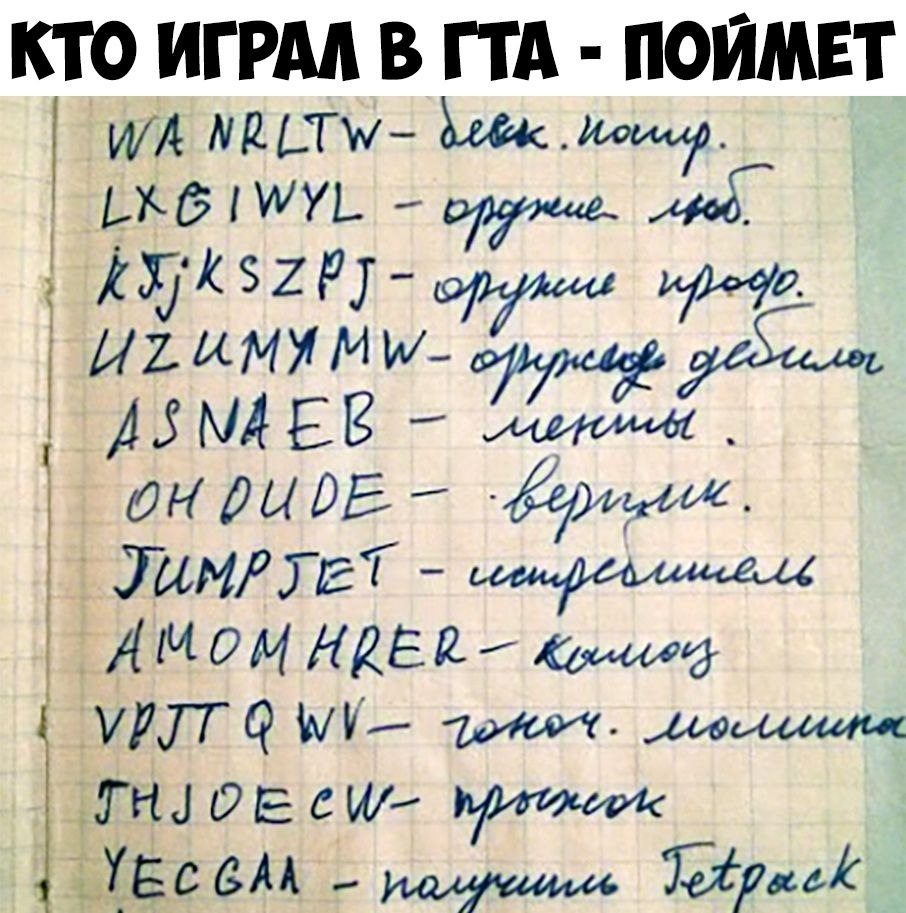 КТО ИГРАЛ В ГТА - ПОЙМЕТ
WANRLTW – беск. патр.
LXGIWYL – оружие люб.
KJJKSZPJ – оружие проф.
UZUMYMW – оружие дебила
ASNAEB – менты.
OHDUDE – вертик.
JUMPJET – истребитель
AMOMHRER – камаз
VPJTQWV – гоноч. машина
JHJOECW – прыжок
YECGAA – получить Jetpack